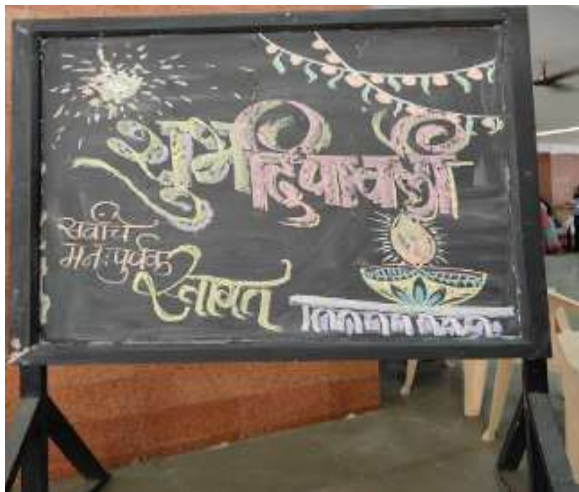 शुभ दिपावली
सर्वांचे
मनःपुर्वक
स्वागत